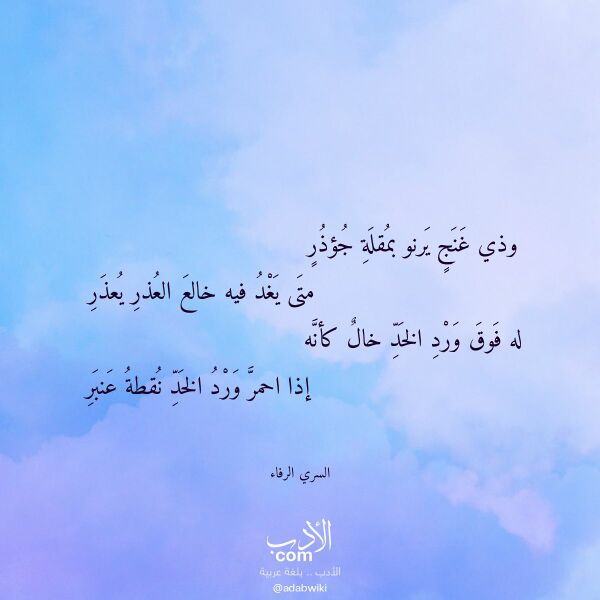 وذي غَنَجٍ يَرنو بمُقلَةِ جُؤذُرٍ
متَى يَغْدُ فيه خالعَ العُذرِ يُعذَرِ
له فَوقَ وَرْدِ الخَدِّ خالٌ كأنَّه
إذا احمرَّ وَرْدُ الخَدِّ نُقطةُ عَنبَرِ
السري الرفاء
الأدب
com
الأدب .. بلغة عربية
@adabwiki